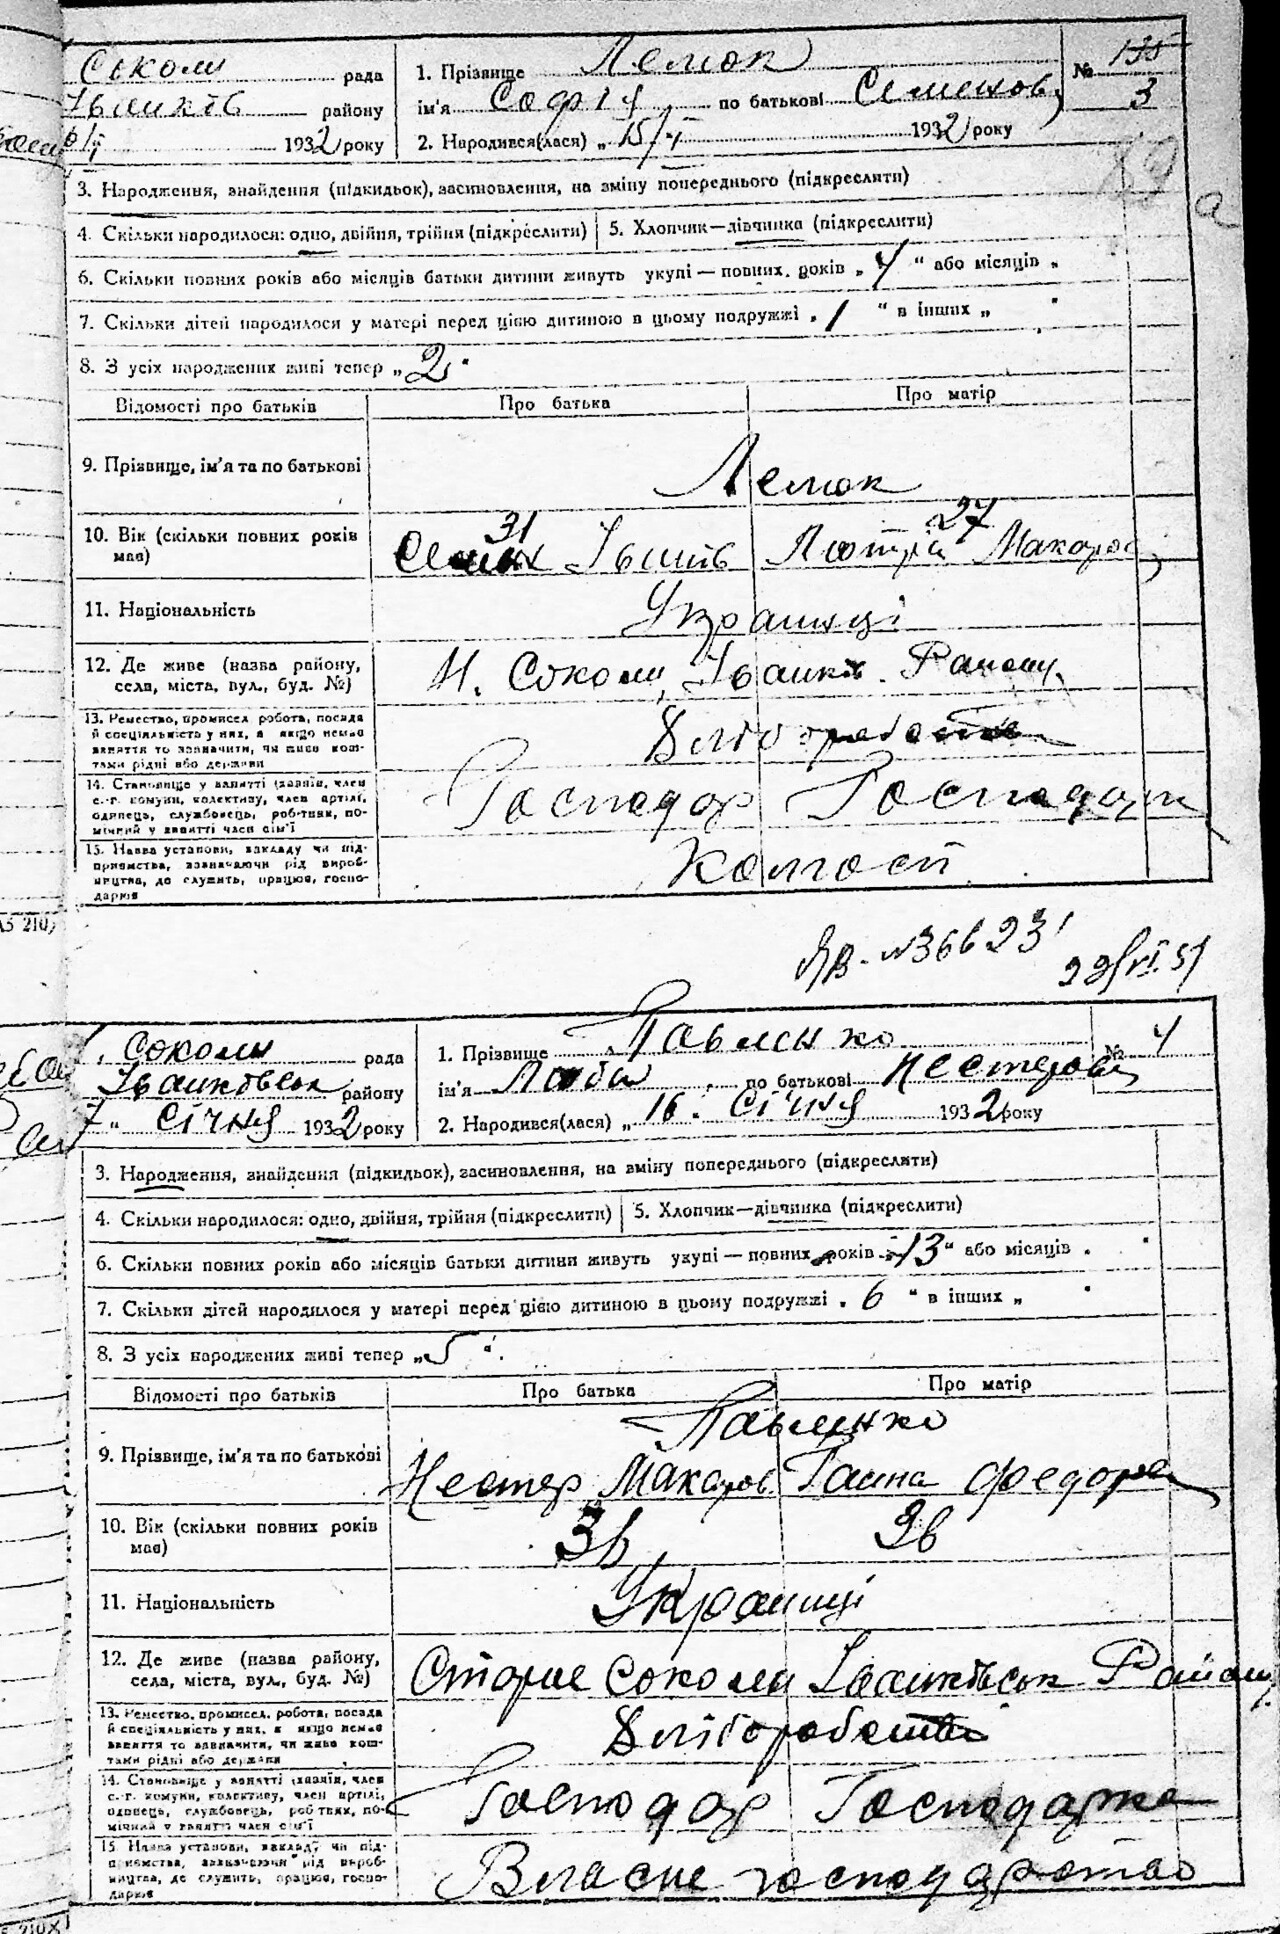 Соколи рада
1. Прізвище Лемок
№ 135
3
Іванків району
ім'я Софія по батькові Семенов
1932 року
2. Народився(лася) „ 15/I 1932 року
3. Народження, знайдення (підкидьок), засиновлення, на зміну попереднього (підкреслити)
89 а
4. Скільки народилося: одно, двійня, трійня (підкреслити) 5. Хлопчик—дівчинка (підкреслити)
6. Скільки повних років або місяців батьки дитини живуть укупі — повних років „ 4 " або місяців „
7. Скільки дітей народилося у матері перед цією дитиною в цьому подружжі „ 1 " в інших „
8. З усіх народжених живі тепер „ 2 "
Відомості про батьків Про батька Про матір
9. Прізвище, ім'я та по батькові
Лемок
10. Вік (скільки повних років має)
31 27
Іванів Макаров
11. Національність
Українці
12. Де живе (назва району, села, міста, вул., буд. №)
Н. Соколи, Іванків. Району.
13. Ремество, промисел, робота, посада й спеціяльність у них, а якщо немає заняття то зазначити, чи живе коштами рідні або держави
Хліборобство
14. Становище у занятті (хазяїн, член с.-г. комуни, колективу, член артілі, одинець, службовець, робітник, помічний у занятті член сім'ї
Господар Господарк
15. Назва установи, закладу чи підприємства, зазначаючи рід виробництва, де служить, працює, господарює
Колгосп
А5 210)
№36623
22/VI.51
Соколи рада
1. Прізвище Павленко
№ 4
Іванковськ району
ім'я Люба по батькові Нестеров
7 „ Січня 1932 року
2. Народився(лася) „ 16. Січня 1932 року
3. Народження, знайдення (підкидьок), засиновлення, на зміну попереднього (підкреслити)
4. Скільки народилося: одно, двійня, трійня (підкреслити) 5. Хлопчик—дівчинка (підкреслити)
6. Скільки повних років або місяців батьки дитини живуть укупі — повних років „ 13 " або місяців „
7. Скільки дітей народилося у матері перед цією дитиною в цьому подружжі „ 6 " в інших „
8. З усіх народжених живі тепер „ 5 "
Відомості про батьків Про батька Про матір
9. Прізвище, ім'я та по батькові
Павленко
Нестер Макаров Ганна Федоров
10. Вік (скільки повних років має)
36 36
11. Національність
Українці
12. Де живе (назва району, села, міста, вул., буд. №)
Старие Соколи Іванківськ Району
13. Ремество, промисел, робота, посада й спеціяльність у них, а якщо немає заняття то зазначити, чи живе коштами рідні або держави
Хліборобство
14. Становище у занятті (хазяїн, член с.-г. комуни, колективу, член артілі, одинець, службовець, робітник, помічний у занятті член сім'ї
Господар Господарка
15. Назва установи, закладу чи підприємства, зазначаючи рід виробництва, де служить, працює, господарює
Власне господарство